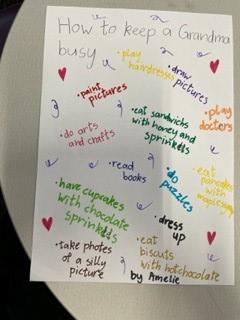 How to keep a Grandma
busy
• play
hairdressers
• draw
pictures
• paint
pictures
• eat sandwichs
with honey and
sprinkles
• play
docters
• do arts
and crafts
• read
books
• do
puzzles
• eat
pancakes
with
• have cupcakes
with chocolate
sprinkles
• dress
up
• take photos
of a silly
picture
• eat
biscuts
with hotchocolate
by Amelie